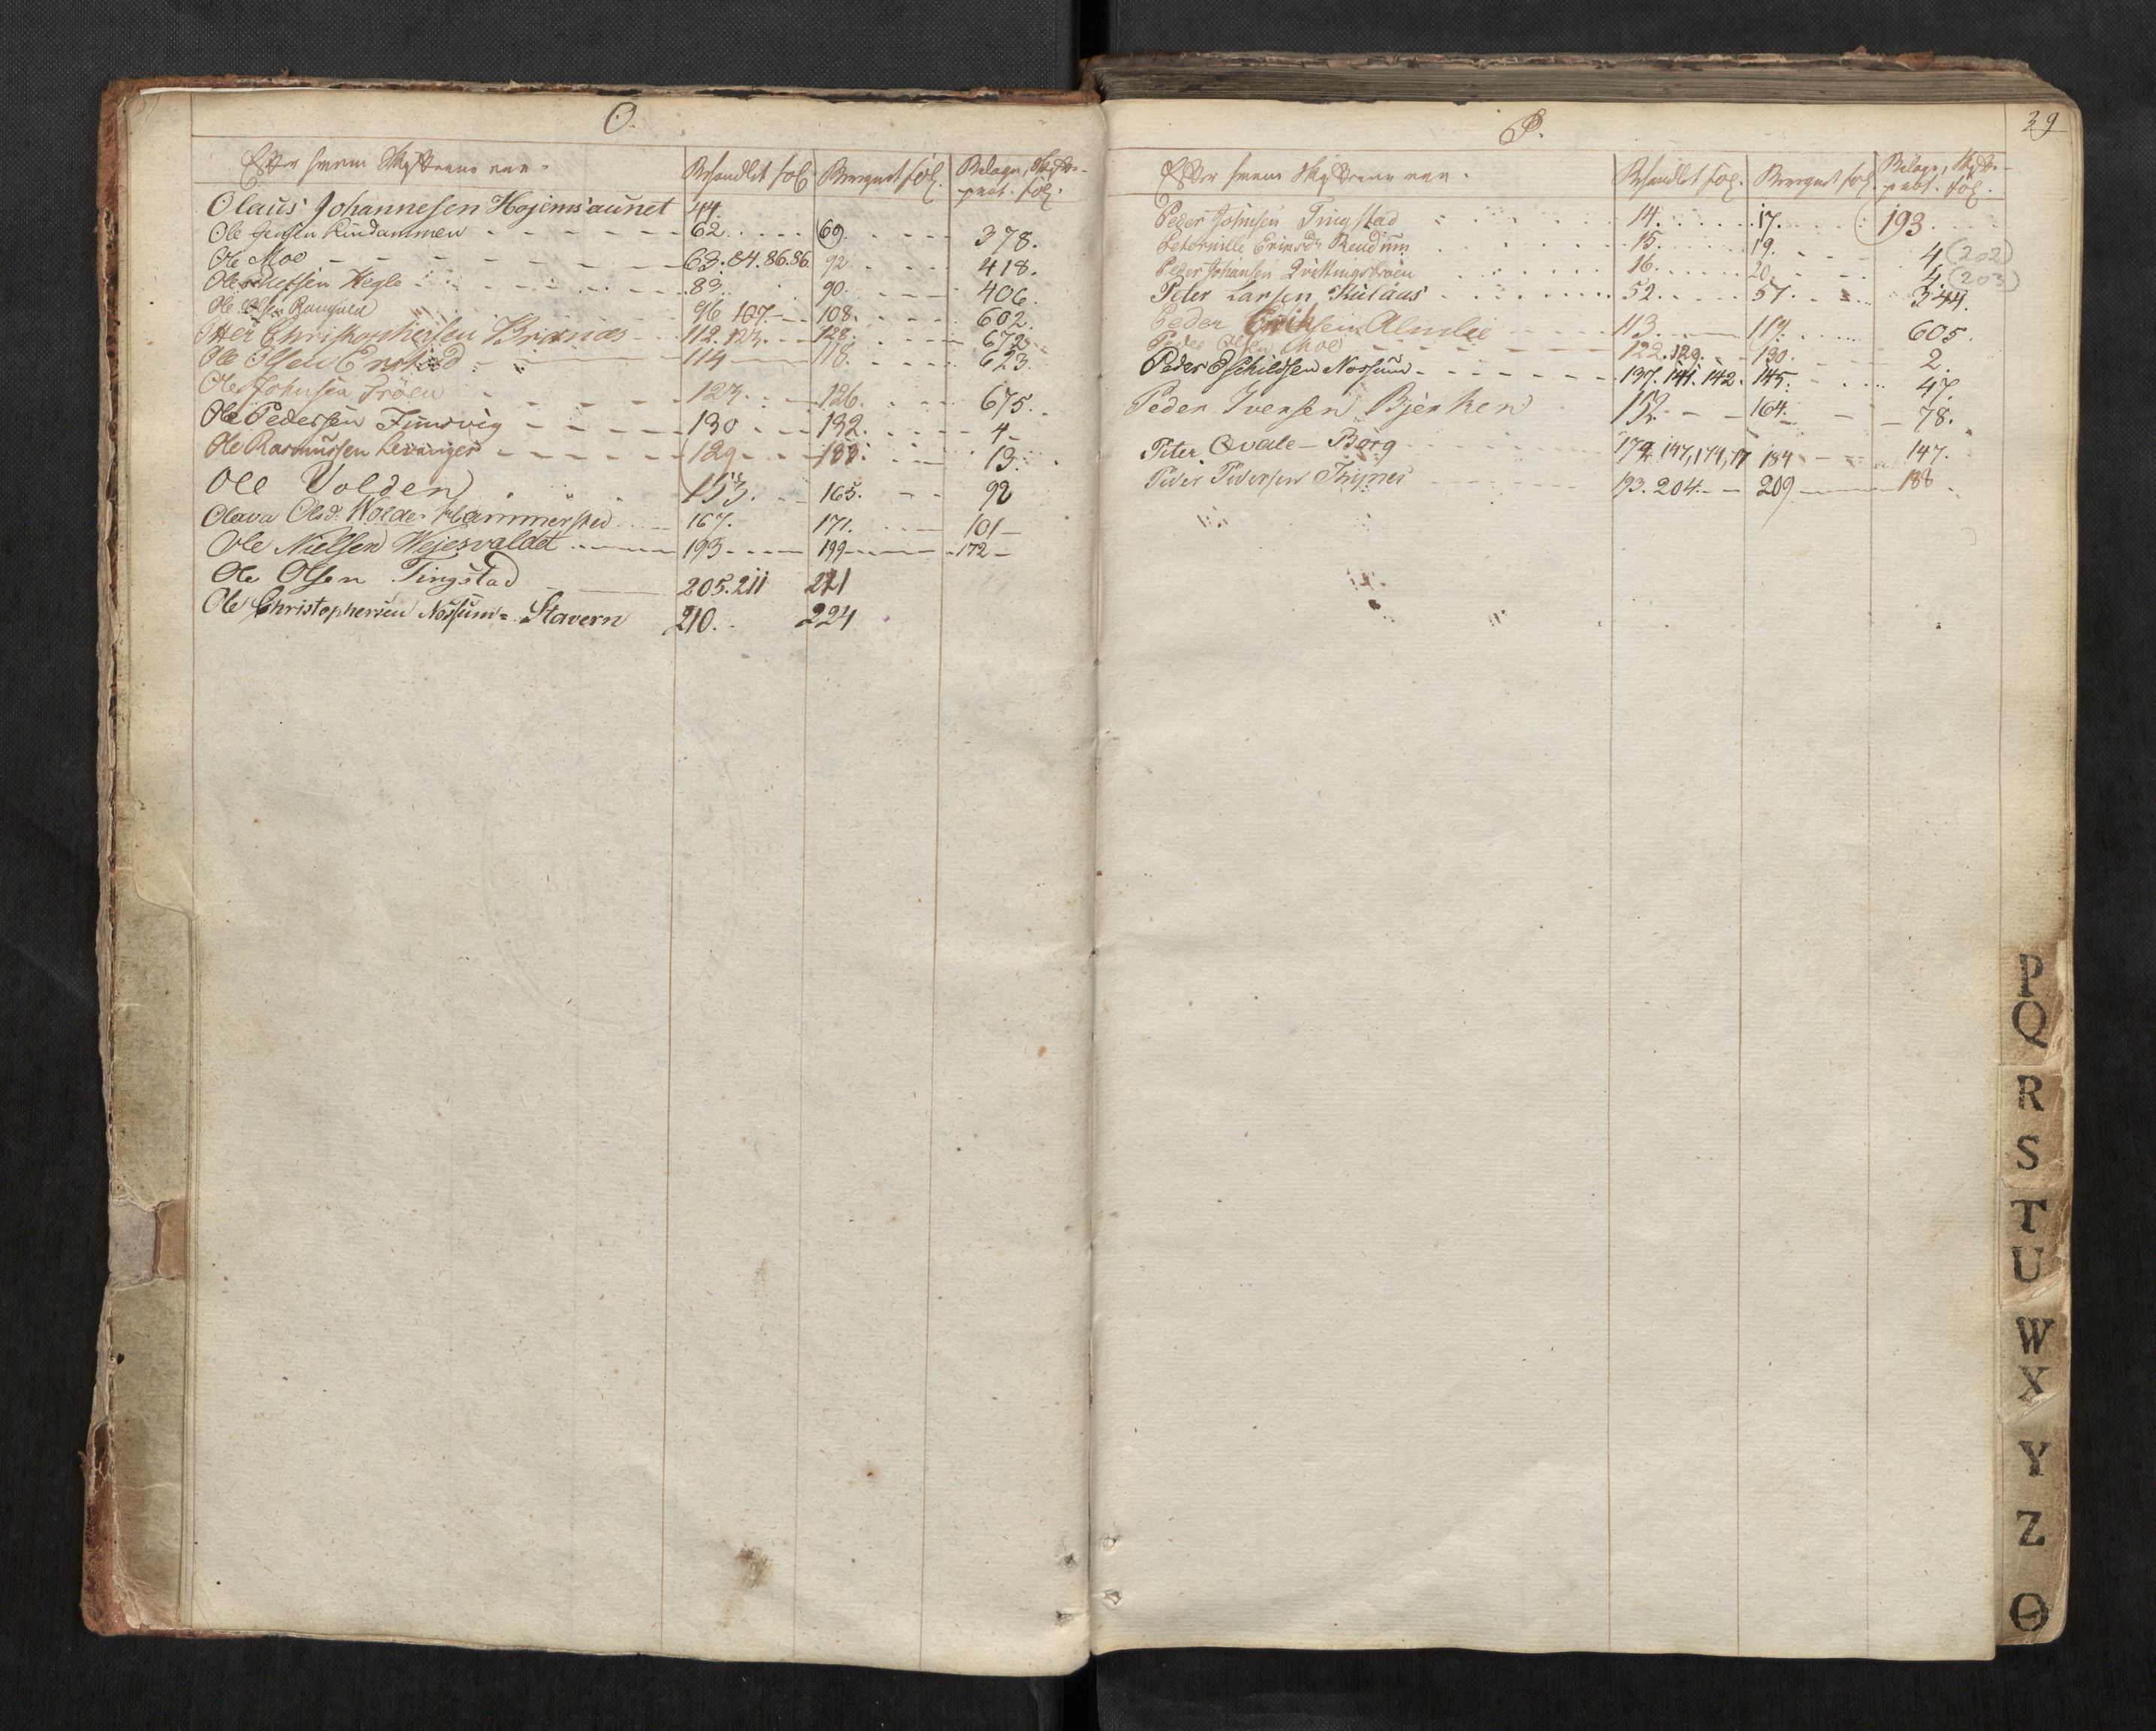 O.
Efter hvem Skifterne ere.
Behandlet fol. Beregnet fol. Belagn, Skifte-
prot. fol.
Olaus Johannesen Hojemsaunet 44.
Ole Jensen Lindammen 62. 69. 378.
Ole Moe 63. 84. 86. 86. 92 418.
Ole Hegle 83. 90. 406.
Ole Olsen 96 107 108. 602.
Christophersen 112. 123. 128. 672
Ole Olsen 114 118. 623.
Ole Johnsen Trøen 123. 126. 675.
Ole Pedersen Finsvig 130 132. 4
Ole Rasmussen Levanger 129 13.
Ole Volden 153. 165. 92
Olava Olsd. Hammersted 167. 171. 101
Ole Nielsen Wejesvaldet 193 199 172
Ole Olsen Tingstad 205. 211 221
Ole Christophersen Nossum Stavern 210. 224
39
P.
Efter hvem Skifterne ere.
Behandlet fol. Beregnet fol. Belagn, Skifte-
prot. fol.
Peder Johnsen Tingstad 14. 17. 193
Peternille 15. 19. 4 (202)
Peder Johansen 16. 20. 4 (203)
Peter Larsen Kulaas 52. 57. 344.
Peder Eriksen Almlie 113. 117. 605.
Peder Olsen Moe 122. 129. 130. 2.
Peder Eschildsen Nossum 137. 141. 142. 145. 47.
Peder Iversen Bjerken 152. 164. 78.
Peter Qvale Borg 184 147.
Peder Pedersen 193. 204. 209 188
P
Q
R
S
T
U
W
X
Y
Z
Ø